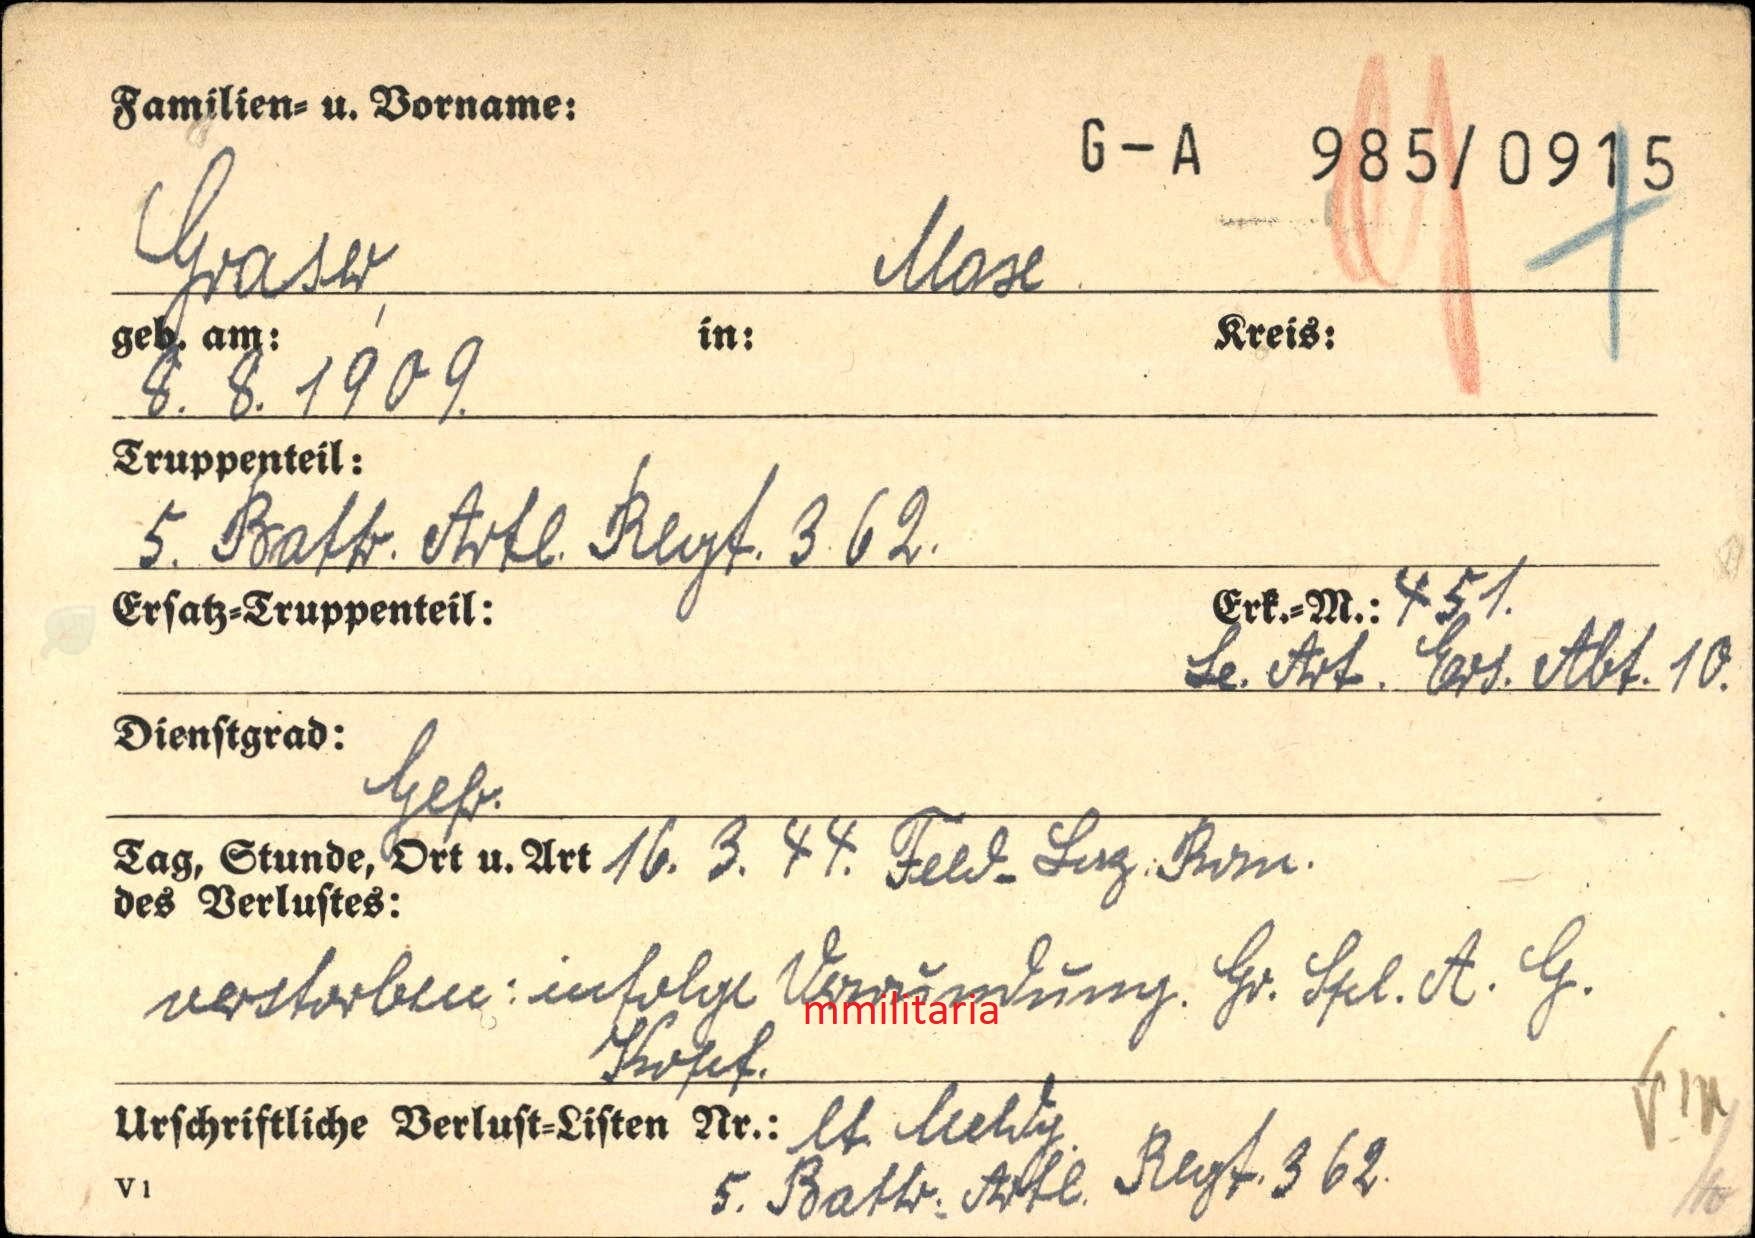 Familien- u. Vorname:
G-A 985/0915
Graser, Max
geb. am: in: Kreis:
8. 8. 1909.
Truppenteil:
5. Battr. Artl. Regt. 362.
Ersatz-Truppenteil: Erk.-M.: 451.
Le. Art. Ers. Abt. 10.
Dienstgrad:
Gefr.
Tag, Stunde, Ort u. Art 16. 3. 44. Feld-Laz. Rom.
des Verlustes:
verstorben: infolge Verwundung. Gr. Spl. A. G.
mmilitaria
Kopf.
Urschriftliche Verlust-Listen Nr.: lt. Meldg.
V1 5. Battr. Artl. Regt. 362.